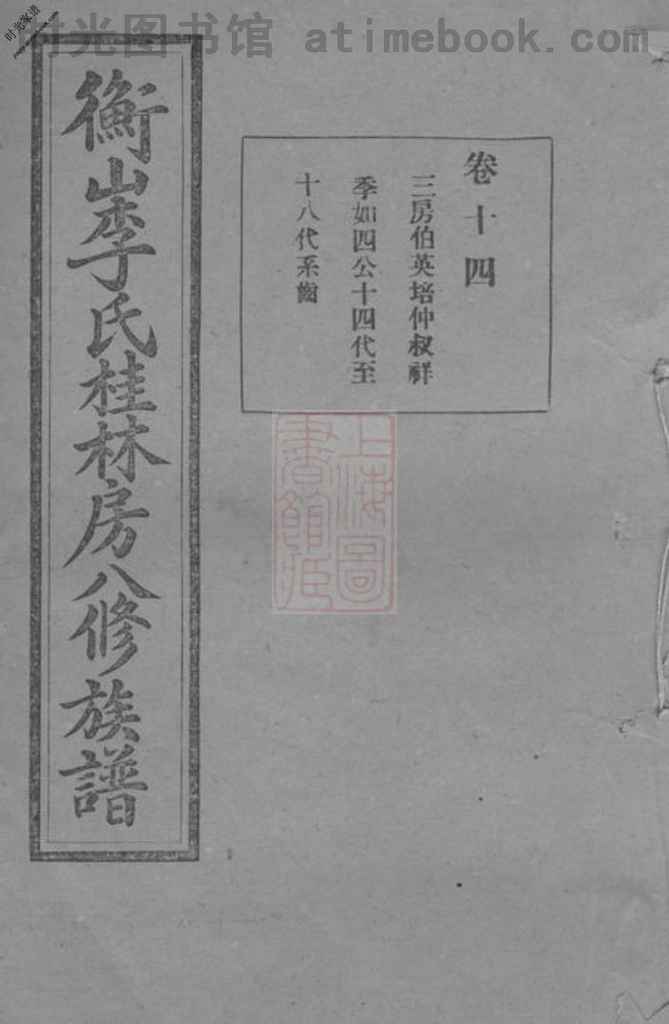 时光图书馆 atimebook.com
时光家谱
卷十四
三房伯英培仲叔祥
季如四公十四代至
十八代系齒
衡山李氏桂林房八修族譜
上海圖
書館藏